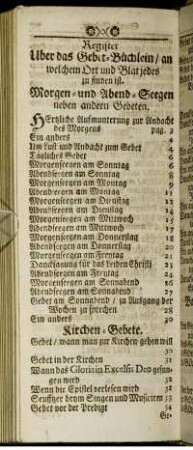 Register
Uber das Gebet-Büchlein/ an
welchem Ort und Blat jedes
zu finden ist.
Morgen- und Abend-Seegen
neben andern Gebeten.
Hertzliche Aufmunterung zur Andacht
des Morgens pag. 3
Ein anders 4
Um Lust und Andacht zum Gebet 4
Tägliches Gebet 6
Morgenseegen am Sonntag 6
Abendseegen am Sonntag 8
Morgenseegen am Montag 9
Abendseegen am Montag
Morgenseegen am Dienstag
Abendseegen am Dienstag 14
Morgenseegen am Mittwoch
Abendseegen am Mittwoch 17
Morgenseegen am Donnerstag
Abendseegen am Donnerstag 20
Morgenseegen am Freytag
Dancksagung für das Leiden Christi
Abendseegen am Freytag 24
Morgenseegen am Sonnabend 26
Abendseegen am Sonnabend 27
Gebet am Sonnabend / zu Ausgang der
Wochen zu sprechen 28
Ein anders 30
Kirchen-Gebete.
Gebet / wann man zur Kirchen gehen will
30
Gebet in der Kirchen 31
Wann das Gloria in Excelsis Deo gesun-
gen wird 32
Wenn die Epistel verlesen wird 32
Seufftzer beym Singen und Musiciren 33
Gebet vor der Predigt 34
Ge-